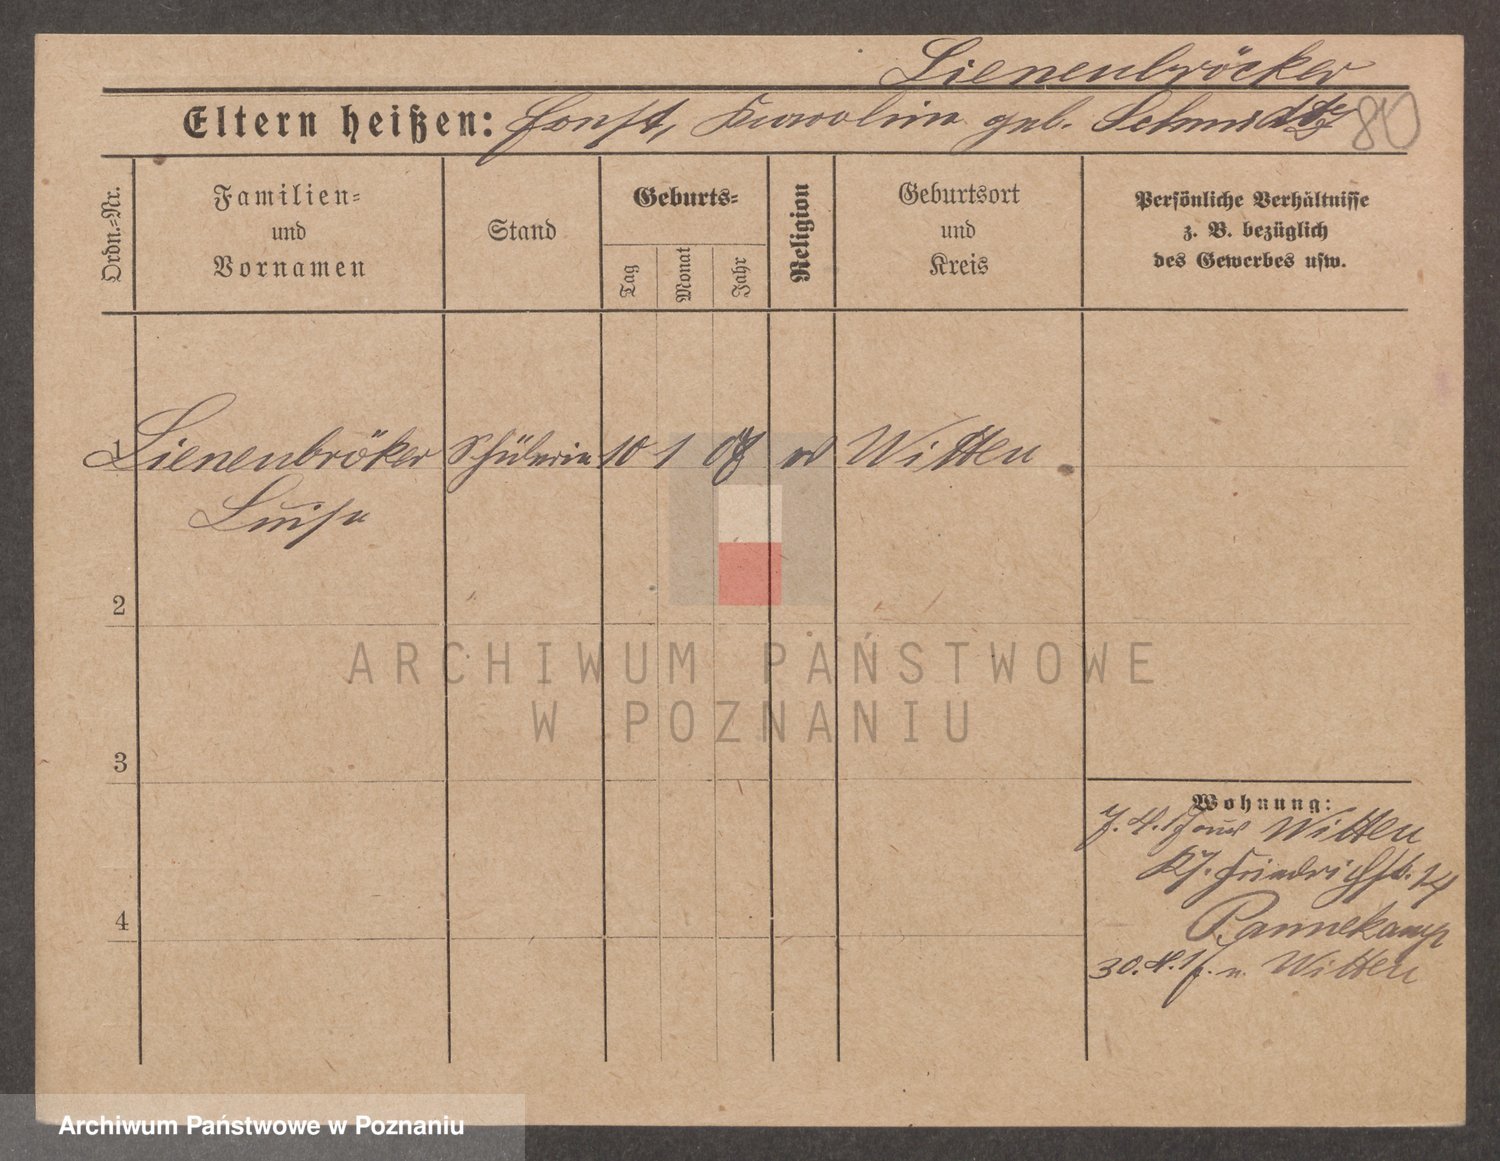 Lienenbröcker
Eltern heißen: Ernst, Karoline geb. Schmidt 80
Ordn.-Nr.
Familien-
und
Vornamen
Stand
Geburts-
Tag
Monat
Jahr
Religion
Geburtsort
und
Kreis
Persönliche Verhältnisse
z. B. bezüglich
des Gewerbes usw.
1 Lienenbröker Schülerin 10 1 07 ev Witten
Luise
2
ARCHIWUM PAŃSTWOWE
W POZNANIU
3
4
Wohnung:
7.4. von Witten
Friedrichstr. 14
Pannekamp
30.4. n. Witten
Archiwum Państwowe w Poznaniu